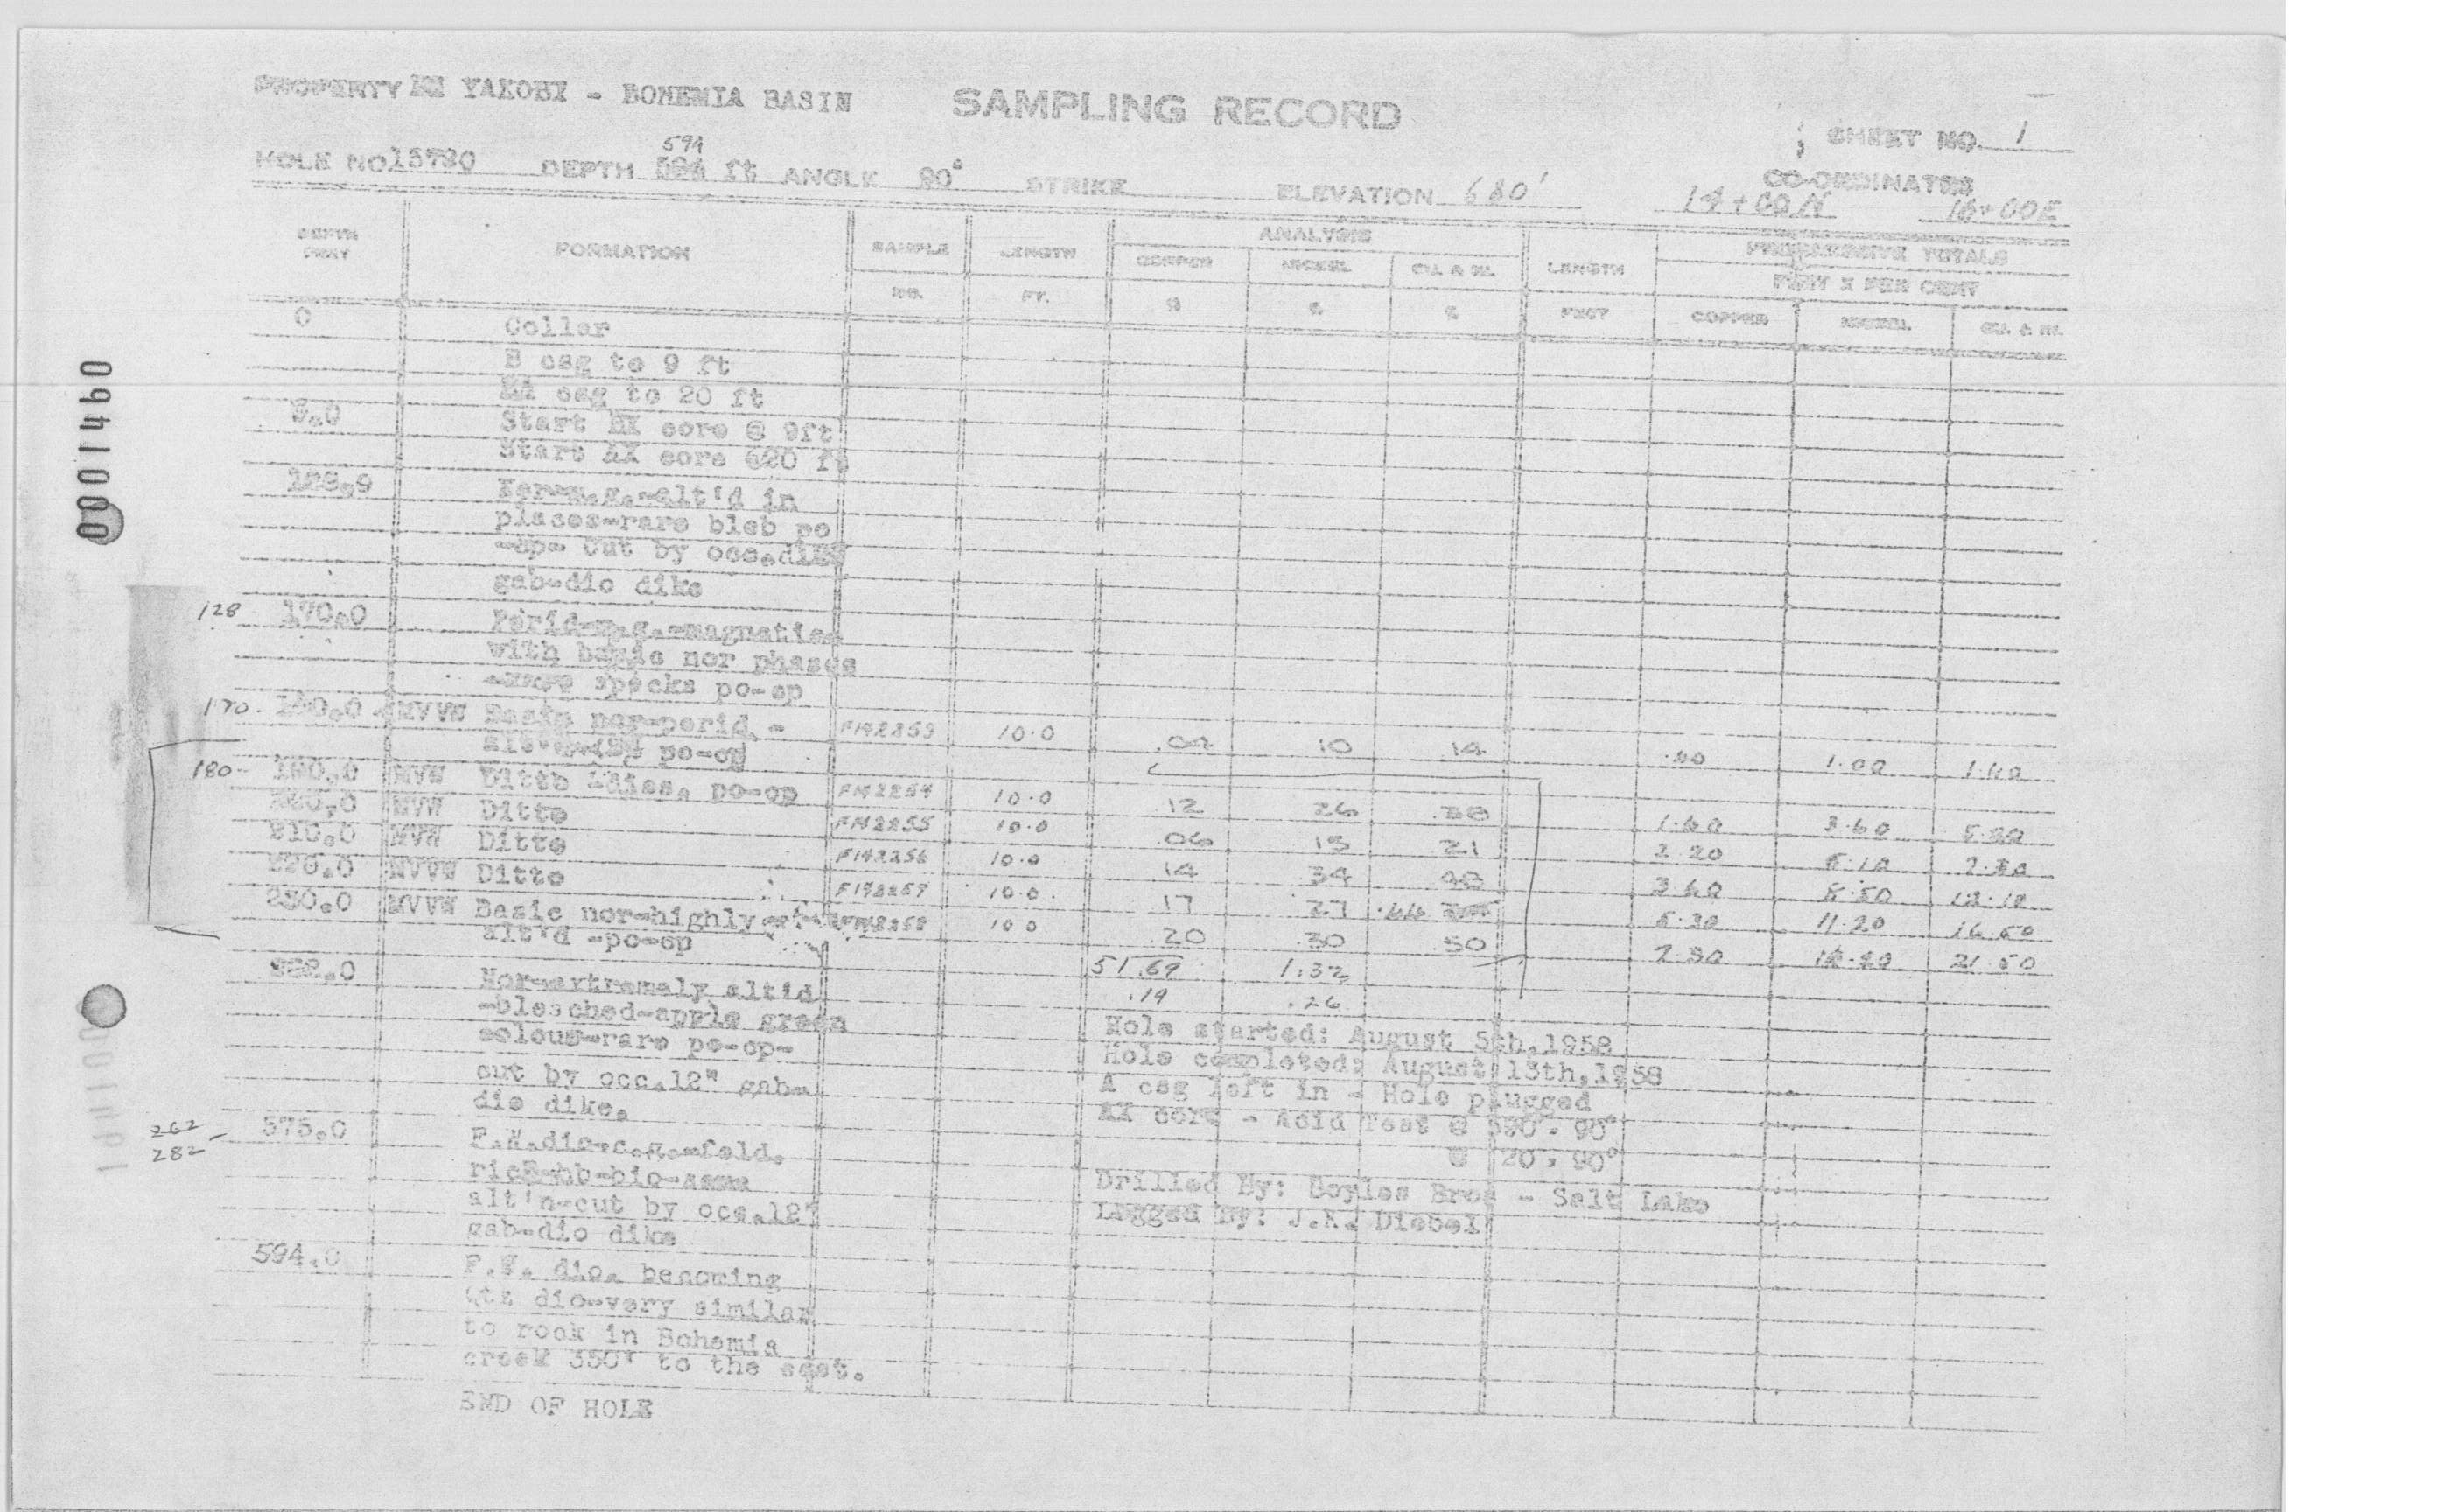 PROPERTY YAKOBI - BOHEMIA BASIN SAMPLING RECORD
SHEET NO. 1
594
HOLE NO 13780 DEPTH 594 ft ANGLE 90° STRIKE ELEVATION 680' CO-ORDINATES
14+00N 16+00E
DEPTH FEET FORMATION SAMPLE NO. LENGTH FT. ANALYSIS COPPER % NICKEL % CU. & NI. % LENGTH FEET PROGRESSIVE TOTALS FEET X PER CENT COPPER NICKEL CU. & NI.
0 Collar
B csg to 9 ft
csg to 20 ft
Start core @ 9ft
Start AX core @20 ft
Nor-m.g.-alt'd in
places-rare bleb po
-cp- Cut by occ.
gab-dio dike
128 170.0 Perid-m.g.-magnatic-
with basic nor phases
specks po-cp
170 180.0 MVVW Basic nor-perid - 10.0 .04 .10 .14 .40 1.00 1.40
po-cp
180 190.0 MVW Ditto po-cp FM2254 10.0 .12 .26 .38 1.60 3.60 5.20
200.0 MVW Ditto FM2255 10.0 .06 .15 .21 2.20 5.10 7.30
210.0 MVW Ditto FM2256 10.0 .14 .34 .48 3.60 8.50 12.10
220.0 MVVW Ditto FM2257 10.0 .17 .27 .44 5.30 11.20 16.50
230.0 MVVW Basic nor-highly 10.0 .20 .30 .50 7.30 14.20 21.50
alt'd -po-cp
5/.69 1.32
Nor-extremely alt'd .14 .26
-bleached-apple green
colour-rare po-cp-
cut by occ.12" gab-
dio dike.
Hole started: August 5th,1958
Hole completed: August 13th,1958
A csg left in - Hole plugged
AX core - Acid Test @ 90°
@ 20, 90°
Drilled By: Boyles Bros - Salt Lake
Logged By: J.R. Diebel
262
282
575.0 F.W.dio-c.g.-feld.
rich-hb-bio-some
alt'n-cut by occ.12"
gab-dio dike
594.0 F.W. dio. becoming
Qtz dio-very similar
to rock in Bohemia
creek 350' to the east.
END OF HOLE
0941000